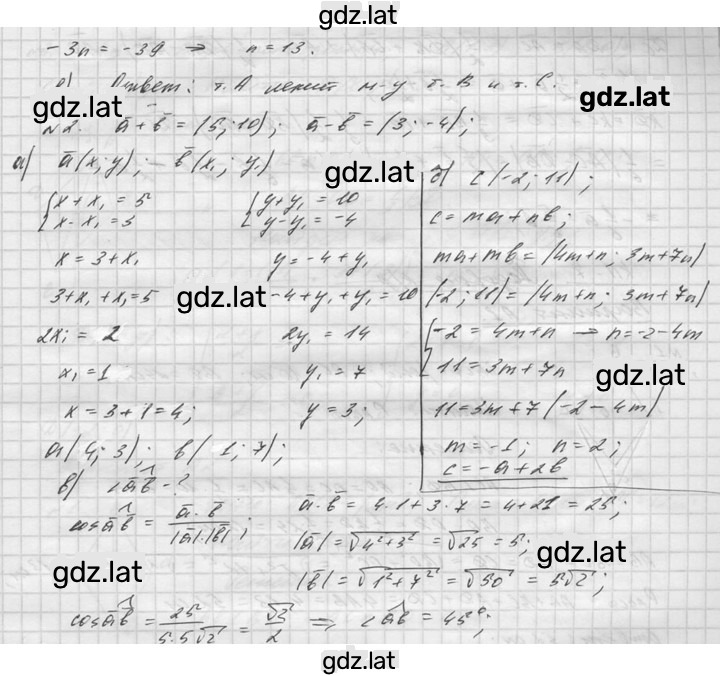 gdz.lat
-3n = -39 ⇒ n = 13.
Ответ: т. А лежит м-у т. В и т. С.
gdz.lat
gdz.lat
№2. a̅+b̅ = (5; 10); a̅-b̅ = (3; -4);
а) a̅(x; y); - b̅(x₁; y₁)
gdz.lat
{x + x₁ = 5
{x - x₁ = 3
{y+y₁ = 10
{y-y₁ = -4
x = 3+x₁
y = -4+y₁
3+x₁+x₁=5
gdz.lat
-4+y₁+y₁=10
2x₁ = 2
2y₁ = 14
x₁=1
y₁ = 7
x = 3+1=4;
y = 3;
a(4; 3); b(1; 7);
б) c(-2; 11);
c=ma+nb;
ma+mb=(4m+n; 3m+7n)
(-2; 11)=(4m+n; 3m+7n)
{-2 = 4m+n → n=-2-4m
{11=3m+7n
gdz.lat
11=3m+7(-2-4m)
m=-1; n=2;
c=-a+2b
в) ∠a̅b̅ -?
cos a̅b̅ = a̅·b̅ / |a̅|·|b̅| ;
a̅·b̅ = 4·1+3·7 = 4+21 = 25;
|a̅|=√4²+3² = √25 = 5;
gdz.lat
gdz.lat
|b̅|=√1²+7² = √50 = 5√2;
cos a̅b̅ = 25 / 5·5√2 = √2 / 2 ⇒ ∠a̅b̅ = 45°;
gdz.lat